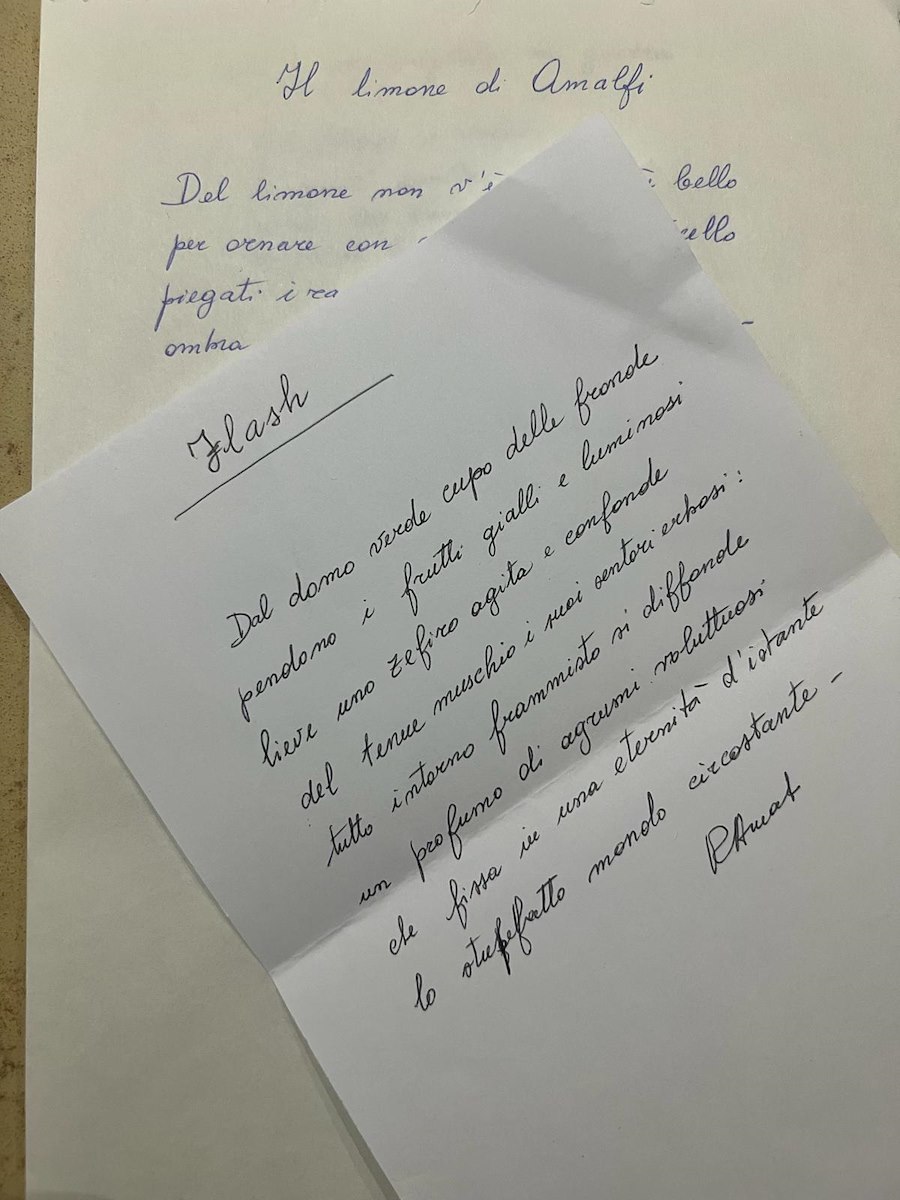 Il limone di Amalfi
Del limone non v'è bello
per ornare con
piegati i
ombra
Flash
Dal domo verde cupo delle fronde
pendono i frutti gialli e luminosi
lieve uno zefiro agita e confonde
del tenue muschio i suoi sentori erbosi:
tutto intorno frammisto si diffonde
un profumo di agrumi voluttuosi
che fissa in una eternità d'istante
lo stupefatto mondo circostante -
RAmat